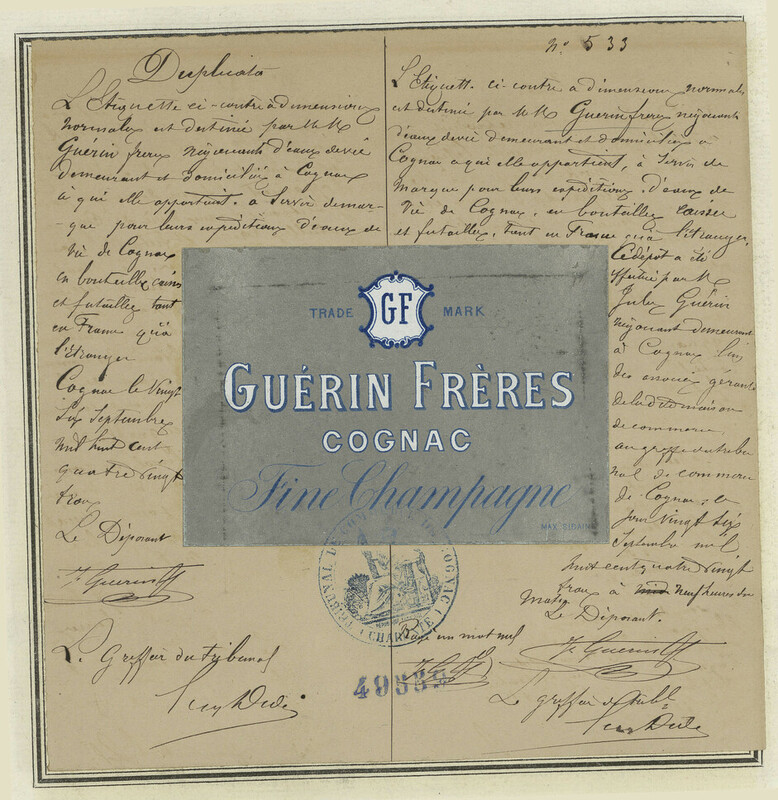 Duplicata
L'Etiquette ci-contre a dimensions
normales est destiné par M M
Guérin frères négociants d'eaux de vie
demeurant et domiciliés à Cognac
à qui elle appartient. à Servir de mar-
que pour leurs expéditions d'eaux de
Vie de Cognac
en bouteilles caisses
et futailles tant
en France qu'à
l'étranger
Cognac le Vingt
Six Septembre
mil huit cent
quatre vingt
trois
Le Déposant
Le Greffier du tribunal
N° 533
L'Etiquette ci-contre a dimensions normales
est destiné par M M Guérin frères négociants
d'eaux de vie demeurant et domiciliés à
Cognac a qui elle appartient, à Servir de
Marque pour leurs expéditions d'eaux de
Vie de Cognac, en bouteilles caisses
et futailles, tant en France qu'à l'étranger.
Ce dépôt a été
effectué par M
Jules Guérin
négociant demeurant
à Cognac l'un
des associés gérants
de la dite maison
de commerce
au greffe du tribu
nal de commerce
de Cognac, le
jour vingt six
Septembre mil
huit cent quatre vingt
trois à neuf heures du
Matin
Le Déposant.
Rayé un mot nul
Le greffier du Tribl
TRADE GF MARK
GUÉRIN FRÈRES
COGNAC
Fine Champagne
TRIBUNAL DE COGNAC
(CHARENTE)